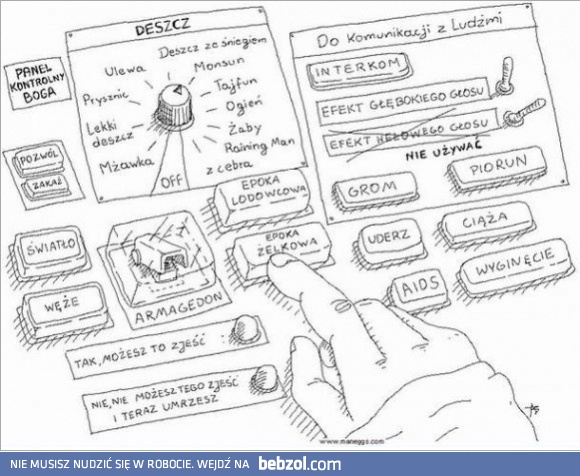 PANEL
KONTROLNY
BOGA
DESZCZ
Deszcz ze śniegiem
Ulewa
Monsun
Prysznic
Tajfun
Ogień
Lekki
deszcz
Żaby
Raining Man
Mżawka
z cebra
OFF
Do Komunikacji z Ludźmi
INTERKOM
EFEKT GŁĘBOKIEGO GŁOSU
EFEKT HELOWEGO GŁOSU
NIE UŻYWAĆ
POZWÓL
ZAKAŻ
EPOKA
LODOWCOWA
GROM
PIORUN
ŚWIATŁO
EPOKA
ŻELKOWA
UDERZ
CIĄŻA
WĘŻE
ARMAGEDON
AIDS
WYGINĘCIE
TAK, MOŻESZ TO ZJEŚĆ
NIE, NIE MOŻESZ TEGO ZJEŚĆ
I TERAZ UMRZESZ
www.maneggs.com
NIE MUSISZ NUDZIĆ SIĘ W ROBOCIE. WEJDŹ NA bebzol.com